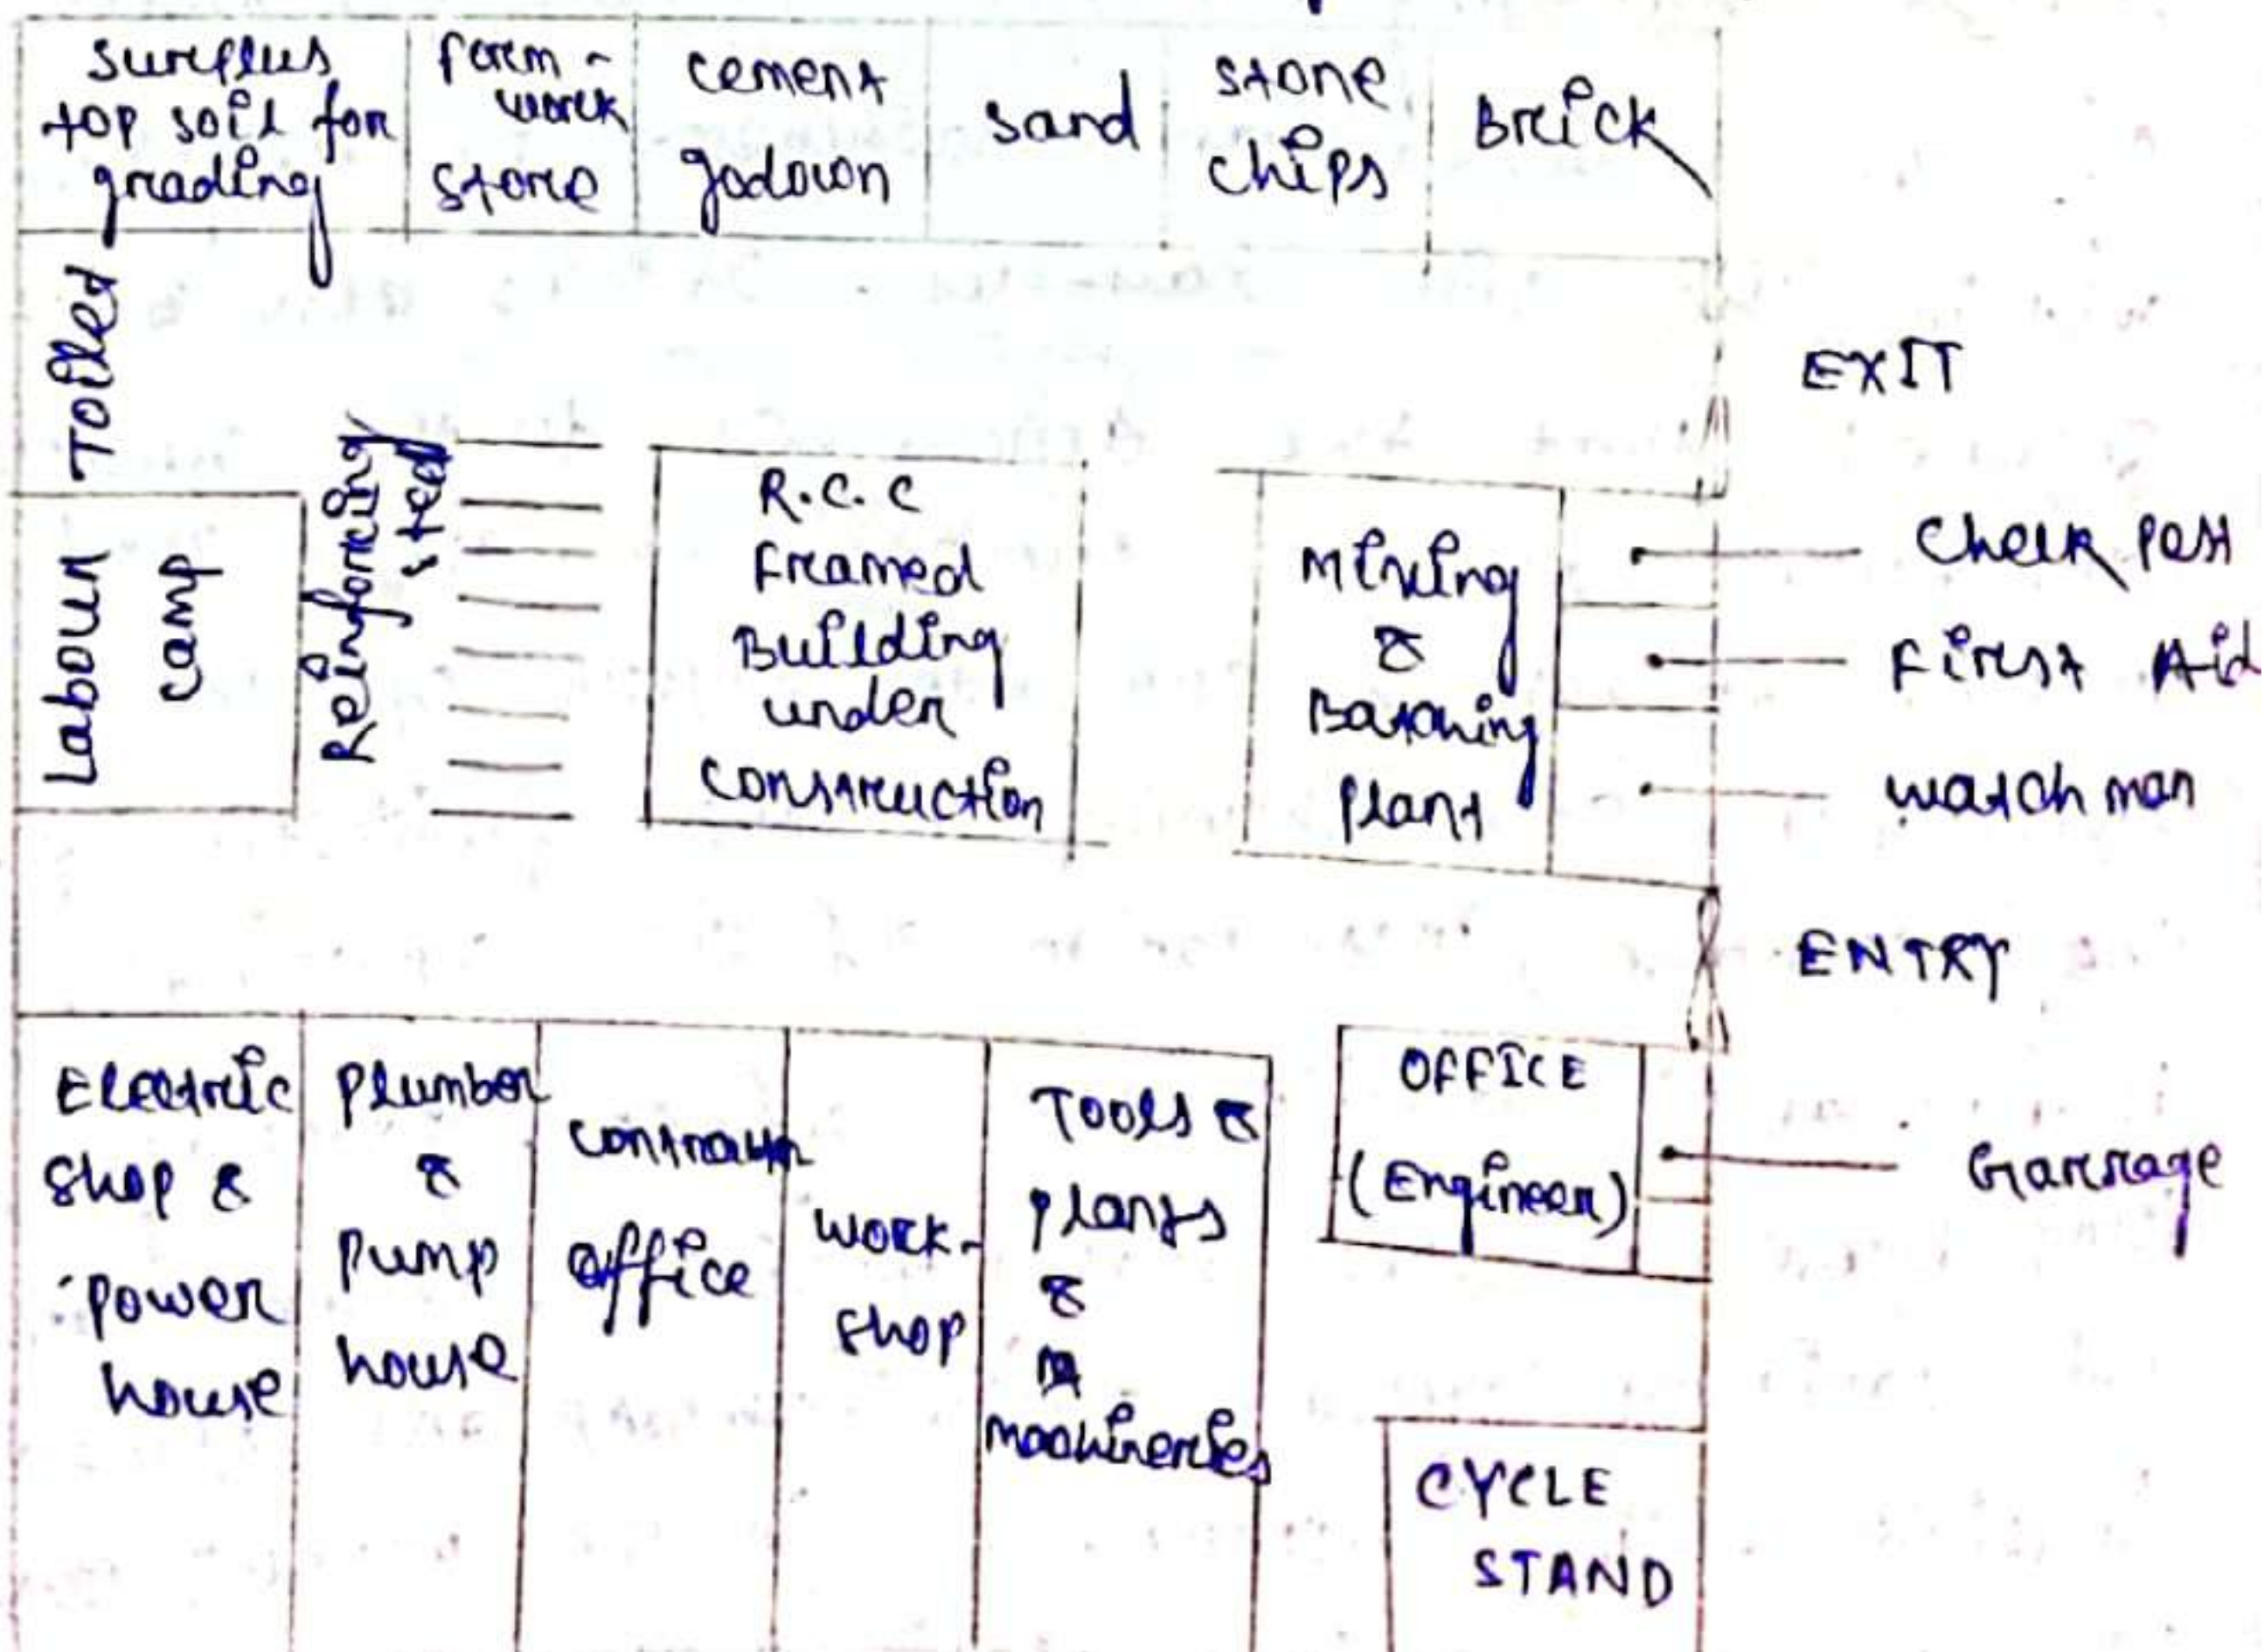 Surplus
top soil for
grading
form-
work
store
cement
godown
sand
stone
chips
Brick
Toilet
EXIT
Labour
camp
Reinforcing
steel
R.C.C
Framed
Building
under
construction
Mixing
&
Batching
plant
Check post
First Aid
watch man
ENTRY
Electric
shop &
power
house
plumber
&
pump
house
contractor
office
work-
shop
Tools &
plants
&
machineries
OFFICE
(Engineer)
Garrage
CYCLE
STAND